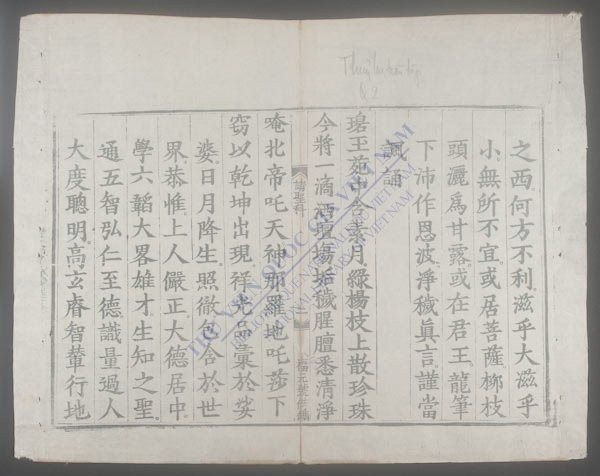 Thuỷ lục toàn tập
Q2
之西何方不利滋乎大滋乎
小無所不宜或居菩薩柳枝
頭灑爲甘露或在君王龍筆
下沛作恩波淨穢眞言謹當
諷誦
珺王苑中含歲月綠楊枝上散珍珠
今將一滴洒壇場垢穢腥羶悉清淨
唵北帝吒天神那羅地吒莎下
竊以乾坤出現祥光品彙於娑
婆日月降生照徹包含於世
界恭惟上人儼正大德居中
學六韜大畧雄才生知之聖
通五智弘仁至德識量過人
大度聰明高玄睿智輦行地
請聖科
THƯ VIỆN QUỐC GIA VIỆT NAM
BIBLIOTHÈQUE NATIONALE DU VIETNAM
NATIONAL LIBRARY OF VIETNAM